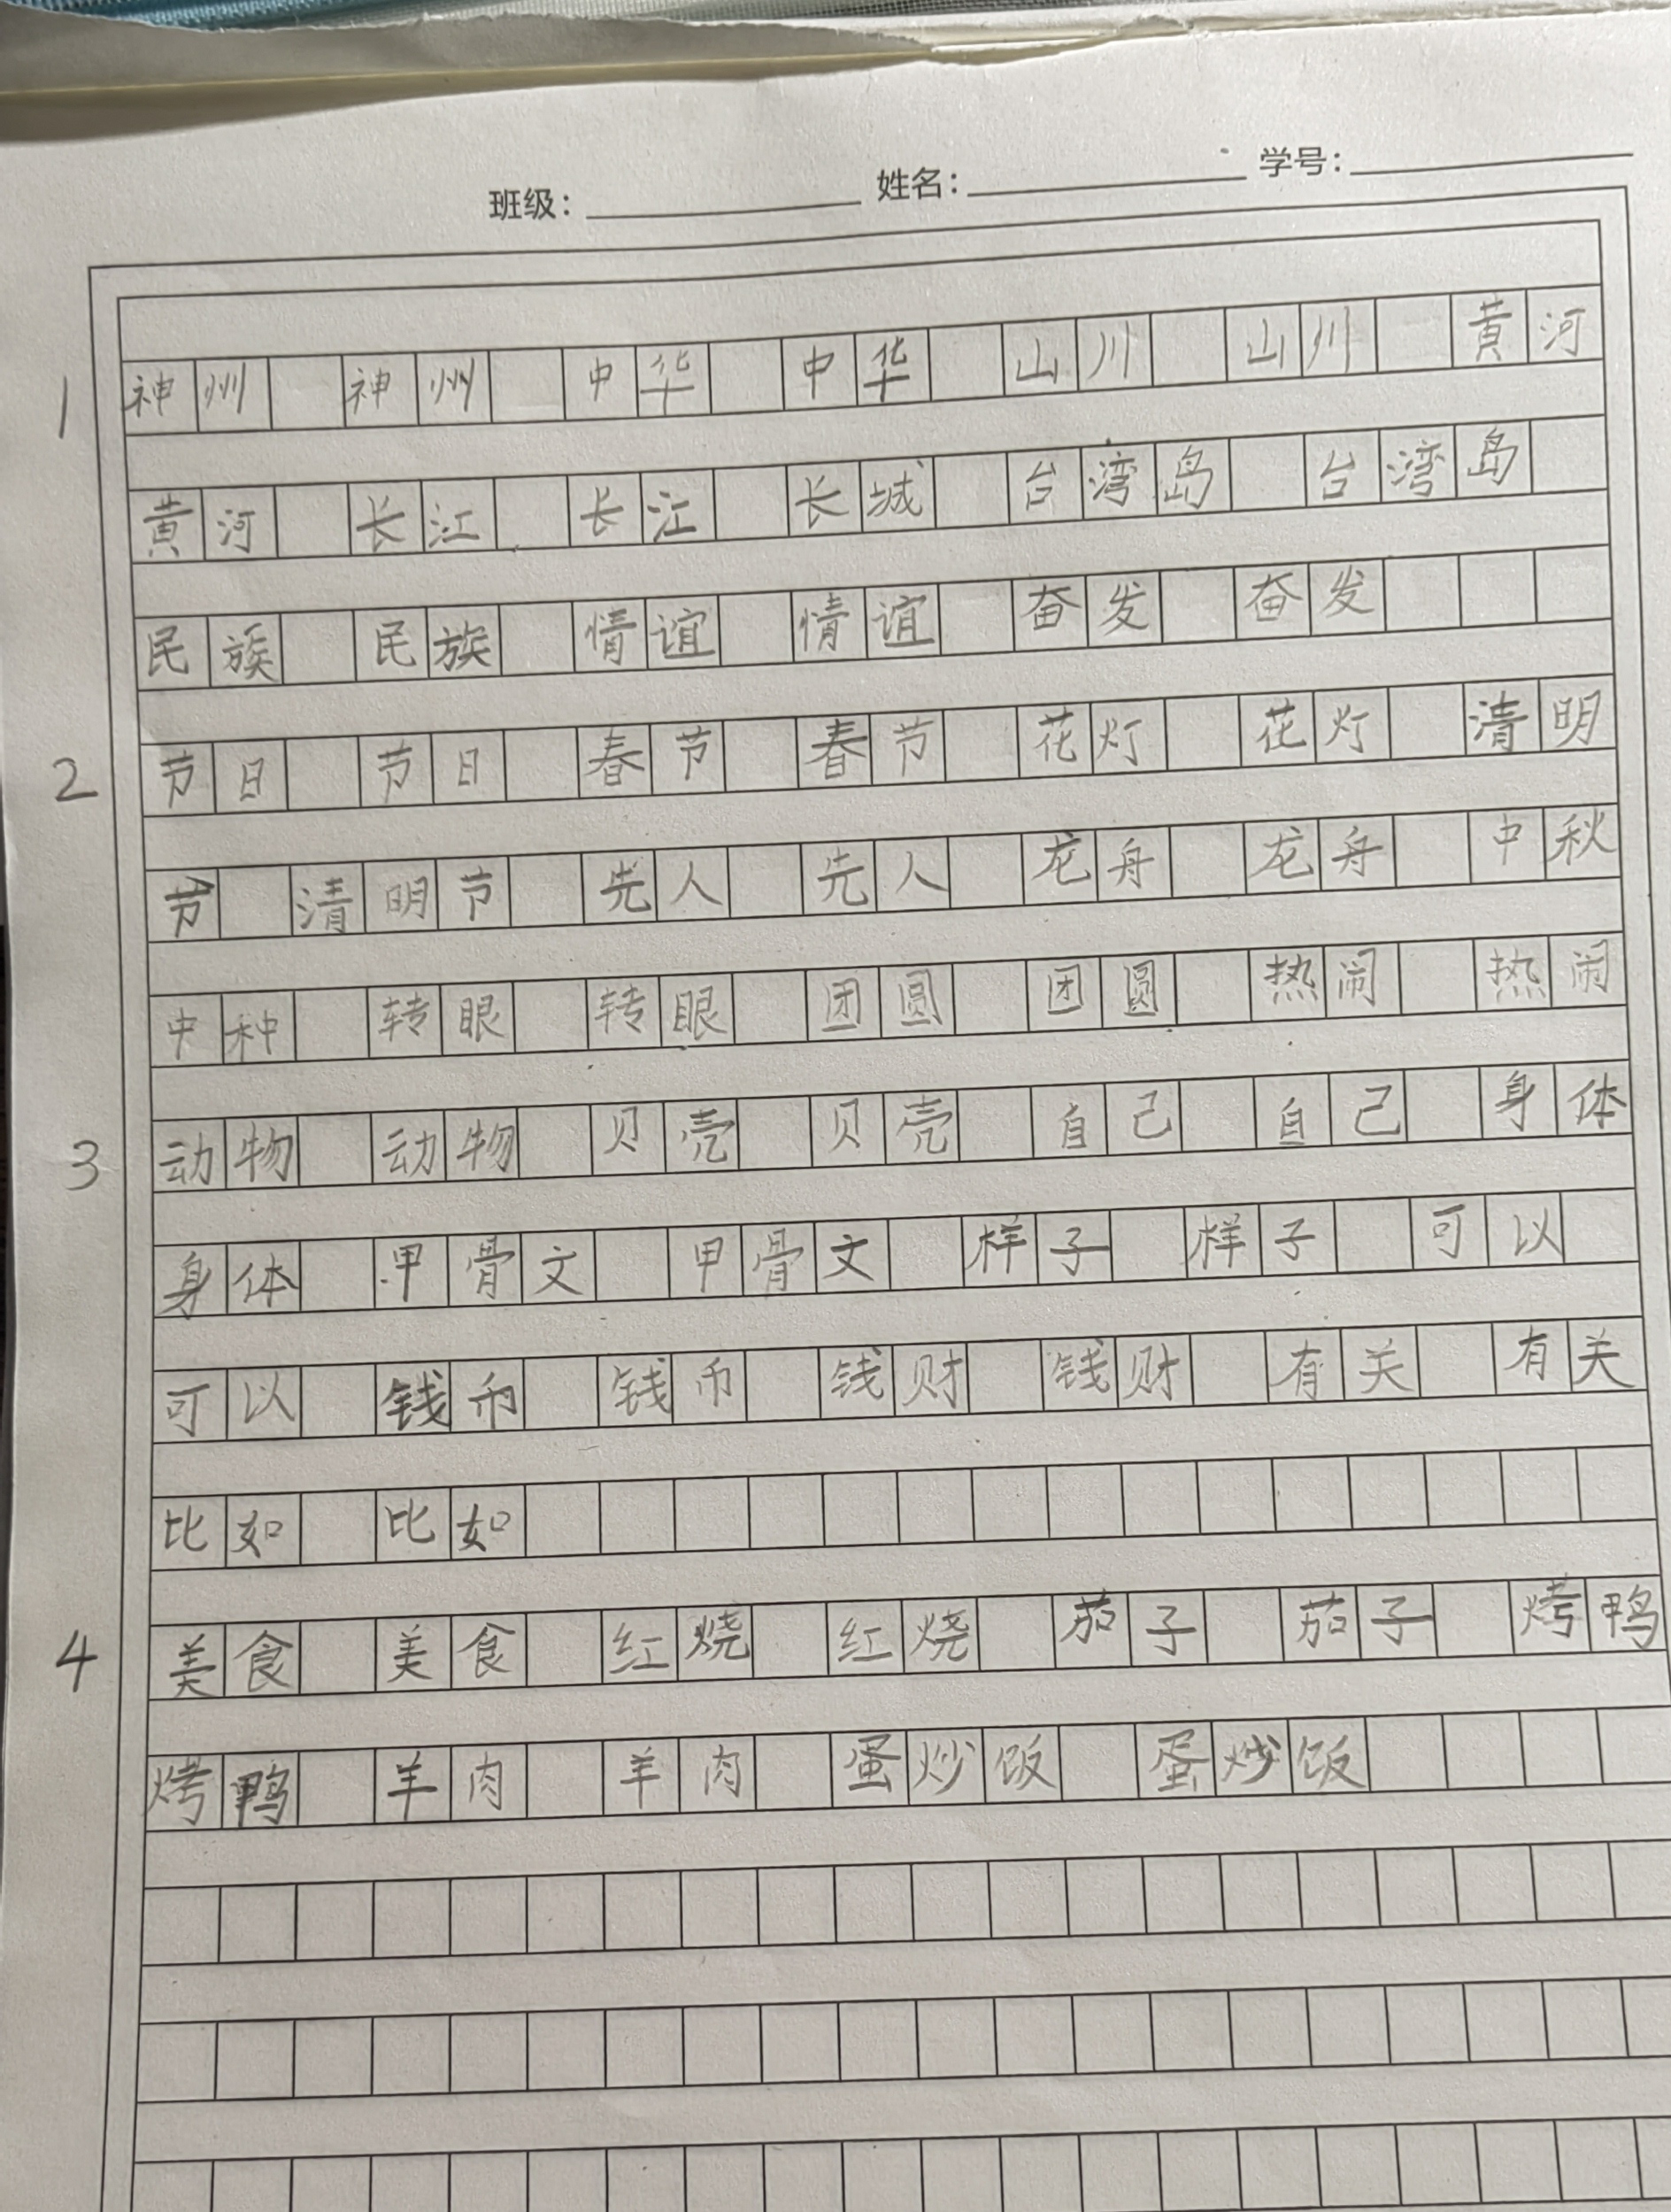 班级： 姓名： 学号：
1 神州 神州 中华 中华 山川 山川 黄河
黄河 长江 长江 长城 台湾岛 台湾岛
民族 民族 情谊 情谊 奋发 奋发
2 节日 节日 春节 春节 花灯 花灯 清明
节 清明节 先人 先人 龙舟 龙舟 中秋
中种 转眼 转眼 团圆 团圆 热闹 热闹
3 动物 动物 贝壳 贝壳 自己 自己 身体
身体 甲骨文 甲骨文 样子 样子 可以
可以 钱币 钱币 钱财 钱财 有关 有关
比如 比如
4 美食 美食 红烧 红烧 茄子 茄子 烤鸭
烤鸭 羊肉 羊肉 蛋炒饭 蛋炒饭